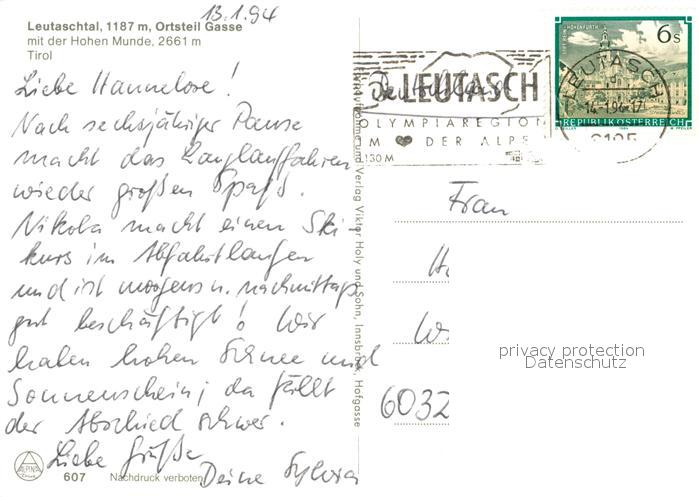 13.1.94
Leutaschtal, 1187 m, Ortsteil Gasse
mit der Hohen Munde, 2661 m
Tirol
Liebe Hannelore!
Nach sechsjähriger Pause
macht das Langlauffahren
wieder großen Spaß.
Nikola macht einen Ski-
kurs im Abfahrtlaufen
und ist morgens u. nachmittags
gut beschäftigt! Wir
haben hohen Schnee und
Sonnenschein; da fällt
der Abschied schwer.
Liebe Grüße
Deine Sylvia
607
Nachdruck verboten
ALPINA
Verlag Viktor Holy und Sohn, Innsbruck, Hofgasse
Deutschland
LEUTASCH
OLYMPIAREGION
IM DER ALPE
1130 M
LEUTASCH
14.1.94-17
6105
6 S
REPUBLIK ÖSTERREICH
Frau
H
W
6032
privacy protection
Datenschutz